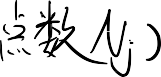 点数(Nj)